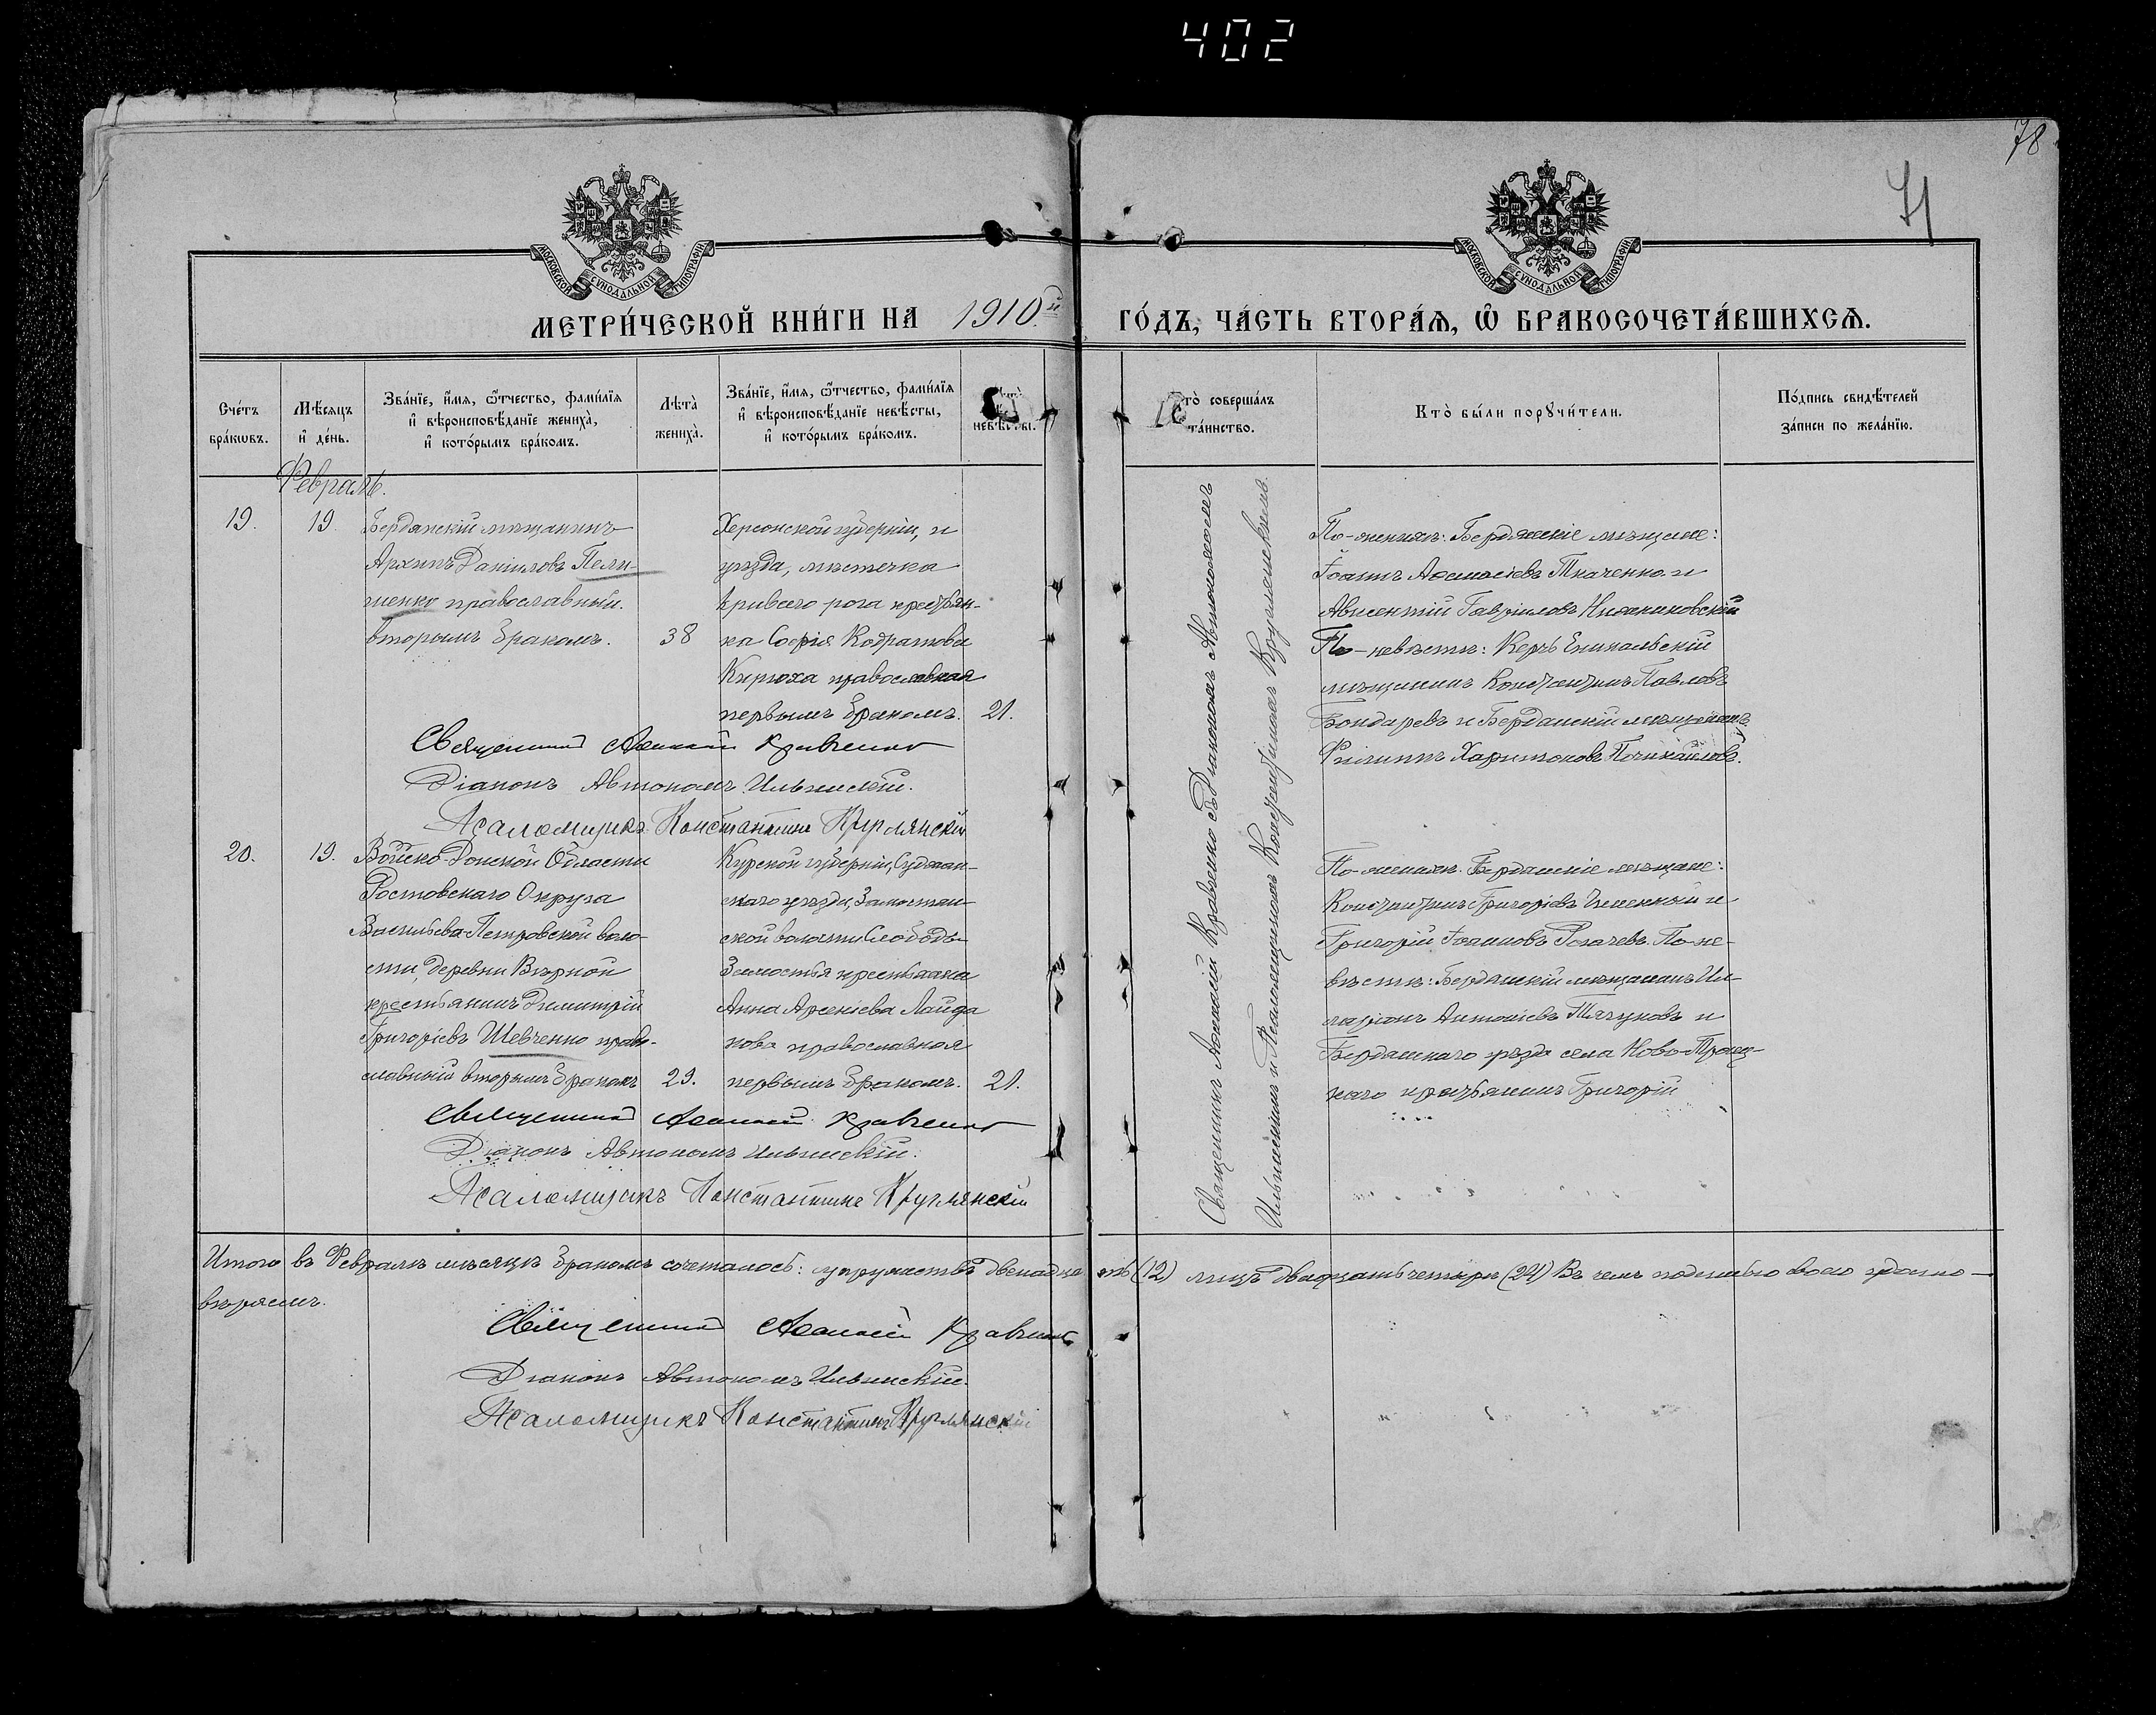 402
78
71
МОСКОВСКОЙ СѴНОДАЛЬНОЙ ТИПОГРАФІИ
МОСКОВСКОЙ СѴНОДАЛЬНОЙ ТИПОГРАФІИ
МЕТРИ́ЧЕСКОЙ КНИ́ГИ НА 1910й ГО́ДЪ, ЧА́СТЬ ВТОРА́Ѧ, Ѿ БРАКОСОЧЕТА́ВШИХСѦ.
Сче́тъ бра́кѡвъ.
Мѣ́сѧцъ и҆ де́нь.
Зва́нїе, и҆́мѧ, ѻ҆́тчество, фамн́лїѧ
и҆ вѣроисповѣ́данїе жениха̀,
и҆ кото́рымъ бра́комъ.
Лѣта̀ жениха̀.
Зва́нїе, и҆́мѧ, ѻ҆́тчество, фами́лїѧ
и҆ вѣроисповѣ́данїе невѣ́сты,
и҆ кото́рымъ бра́комъ.
невѣ́сты.
Кто̀ соверша́лъ
та́инство.
Кто̀ бы́ли порꙋчи́тели.
По́дпись свидѣ́телей
за́писи по жела́нїю.
Февраль.
19.
19.
Бердянскій мѣщанинъ
Архипъ Даніиловъ Пели-
щенко православный.
вторымъ бракомъ.
38
Херсонской губерніи, и
уѣзда, мѣстечка
Кривого рога крестьян-
ка Софія Кодратова
Кирюха православная
первымъ бракомъ.
21.
По-женихѣ: Бердянскіе мѣщане:
Іоаннъ Аѳанасіевъ Ткаченко и
Авксентій Гавріиловъ
По-невѣстѣ: Керчь Еникальскій
мѣщанинъ Константинъ Павловъ
Бондаревъ и Бердянскій мѣщанинъ
Филиппъ Харитоновъ
Священникъ Аѳанасій Кравченко
Діаконъ Автономъ Ильинскій.
Псаломщикъ Константинъ Круглянскій
20.
19.
Войско-Донской Области
Ростовскаго Округа
Васильево-Петровской воло-
сти, деревни Вѣрной
крестьянинъ Димитрій
Григоріевъ Шевченко право-
славный вторымъ бракомъ
29.
Курской губерніи, Суджан-
скаго уѣзда, Замостян-
ской волости Слободы
Замостья крестьянка
Анна Арсеніева Лайда-
кова православная
первымъ бракомъ.
21.
По-женихѣ: Бердянскіе мѣщане:
Константинъ Григоріевъ и
Григорій Іоанновъ Рогачевъ. По-не-
вѣстѣ: Бердянскій мѣщанинъ Ил-
ларіонъ Антоніевъ Тягуновъ и
Бердянскаго уѣзда села Ново-Троиц-
каго крестьянинъ Григорій
Священникъ Аѳанасій Кравченко
Діаконъ Автономъ Ильинскій.
Псаломщикъ Константинъ Круглянскій
Священникъ Аѳанасій Кравченко съ Діакономъ Автономомъ
Ильинскимъ и Псаломщикомъ Константиномъ Круглянскимъ.
Итого въ Февралѣ мѣсяцѣ бракомъ сочеталось: супружествъ двенадцать (12) лицъ двадцать четыре (24) Въ чемъ подписью своею
вѣряемъ.
Священникъ Аѳанасій Кравченко
Діаконъ Автономъ Ильинскій.
Псаломщикъ Константинъ Круглянскій